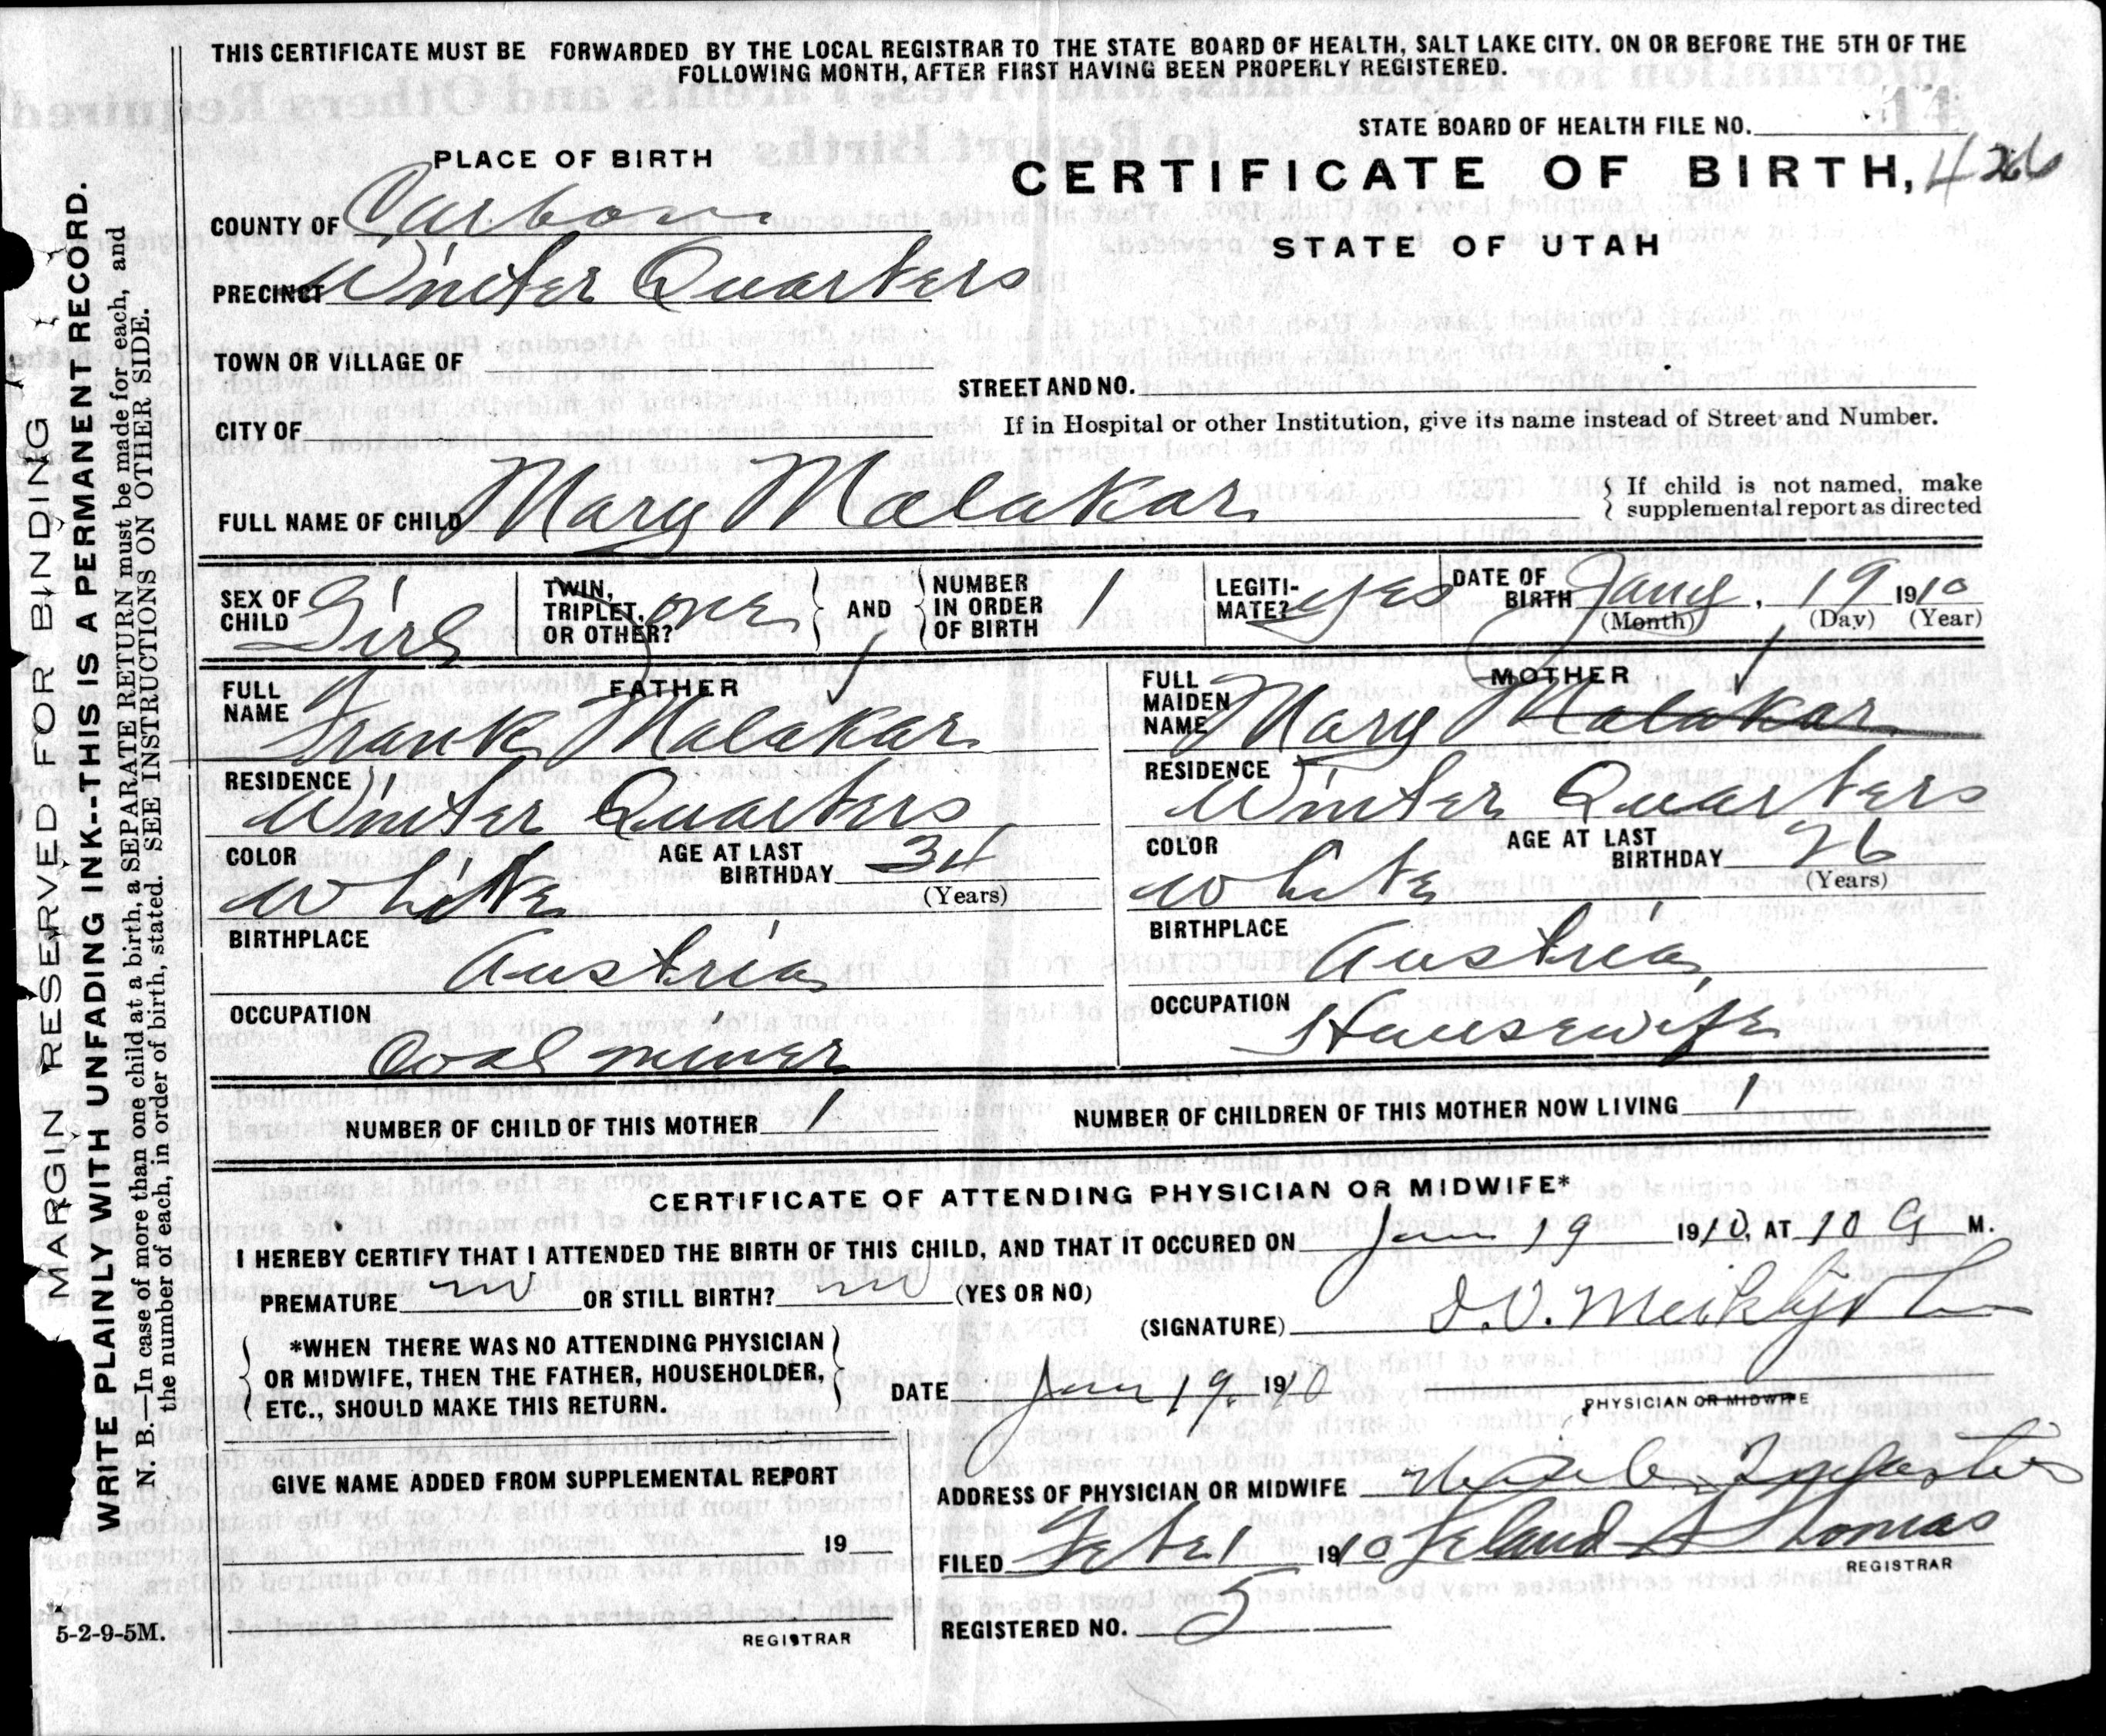 THIS CERTIFICATE MUST BE FORWARDED BY THE LOCAL REGISTRAR TO THE STATE BOARD OF HEALTH, SALT LAKE CITY. ON OR BEFORE THE 5TH OF THE
FOLLOWING MONTH, AFTER FIRST HAVING BEEN PROPERLY REGISTERED.
STATE BOARD OF HEALTH FILE NO.
PLACE OF BIRTH
CERTIFICATE OF BIRTH, 426
STATE OF UTAH
COUNTY OF Carbon
PRECINCT Winter Quarters
TOWN OR VILLAGE OF
STREET AND NO.
CITY OF
If in Hospital or other Institution, give its name instead of Street and Number.
FULL NAME OF CHILD Mary Malakar
If child is not named, make
supplemental report as directed
SEX OF CHILD Girl
TWIN, TRIPLET, OR OTHER? one
AND
NUMBER IN ORDER OF BIRTH 1
LEGITI-MATE? yes
DATE OF BIRTH Jany, 19 1910
(Month) (Day) (Year)
FATHER
FULL NAME Frank Malakar
RESIDENCE
Winter Quarters
COLOR White
AGE AT LAST BIRTHDAY 34
(Years)
BIRTHPLACE
Austria
OCCUPATION
Coal miner
MOTHER
FULL MAIDEN NAME Mary Malakar
RESIDENCE
Winter Quarters
COLOR White
AGE AT LAST BIRTHDAY 26
(Years)
BIRTHPLACE
Austria
OCCUPATION
Housewife
NUMBER OF CHILD OF THIS MOTHER 1
NUMBER OF CHILDREN OF THIS MOTHER NOW LIVING 1
CERTIFICATE OF ATTENDING PHYSICIAN OR MIDWIFE*
I HEREBY CERTIFY THAT I ATTENDED THE BIRTH OF THIS CHILD, AND THAT IT OCCURED ON Jan 19 1910, AT 10 a M.
PREMATURE no OR STILL BIRTH? no (YES OR NO)
(SIGNATURE)
*WHEN THERE WAS NO ATTENDING PHYSICIAN
OR MIDWIFE, THEN THE FATHER, HOUSEHOLDER,
ETC., SHOULD MAKE THIS RETURN.
DATE Jan 19, 1910
PHYSICIAN OR MIDWIFE
GIVE NAME ADDED FROM SUPPLEMENTAL REPORT
19
REGISTRAR
ADDRESS OF PHYSICIAN OR MIDWIFE
FILED Feb 1 1910 Leland A Thomas
REGISTRAR
REGISTERED NO. 5
5-2-9-5M.
MARGIN RESERVED FOR BINDING
WRITE PLAINLY WITH UNFADING INK--THIS IS A PERMANENT RECORD.
N. B.—In case of more than one child at a birth, a SEPARATE RETURN must be made for each, and
the number of each, in order of birth, stated. SEE INSTRUCTIONS ON OTHER SIDE.